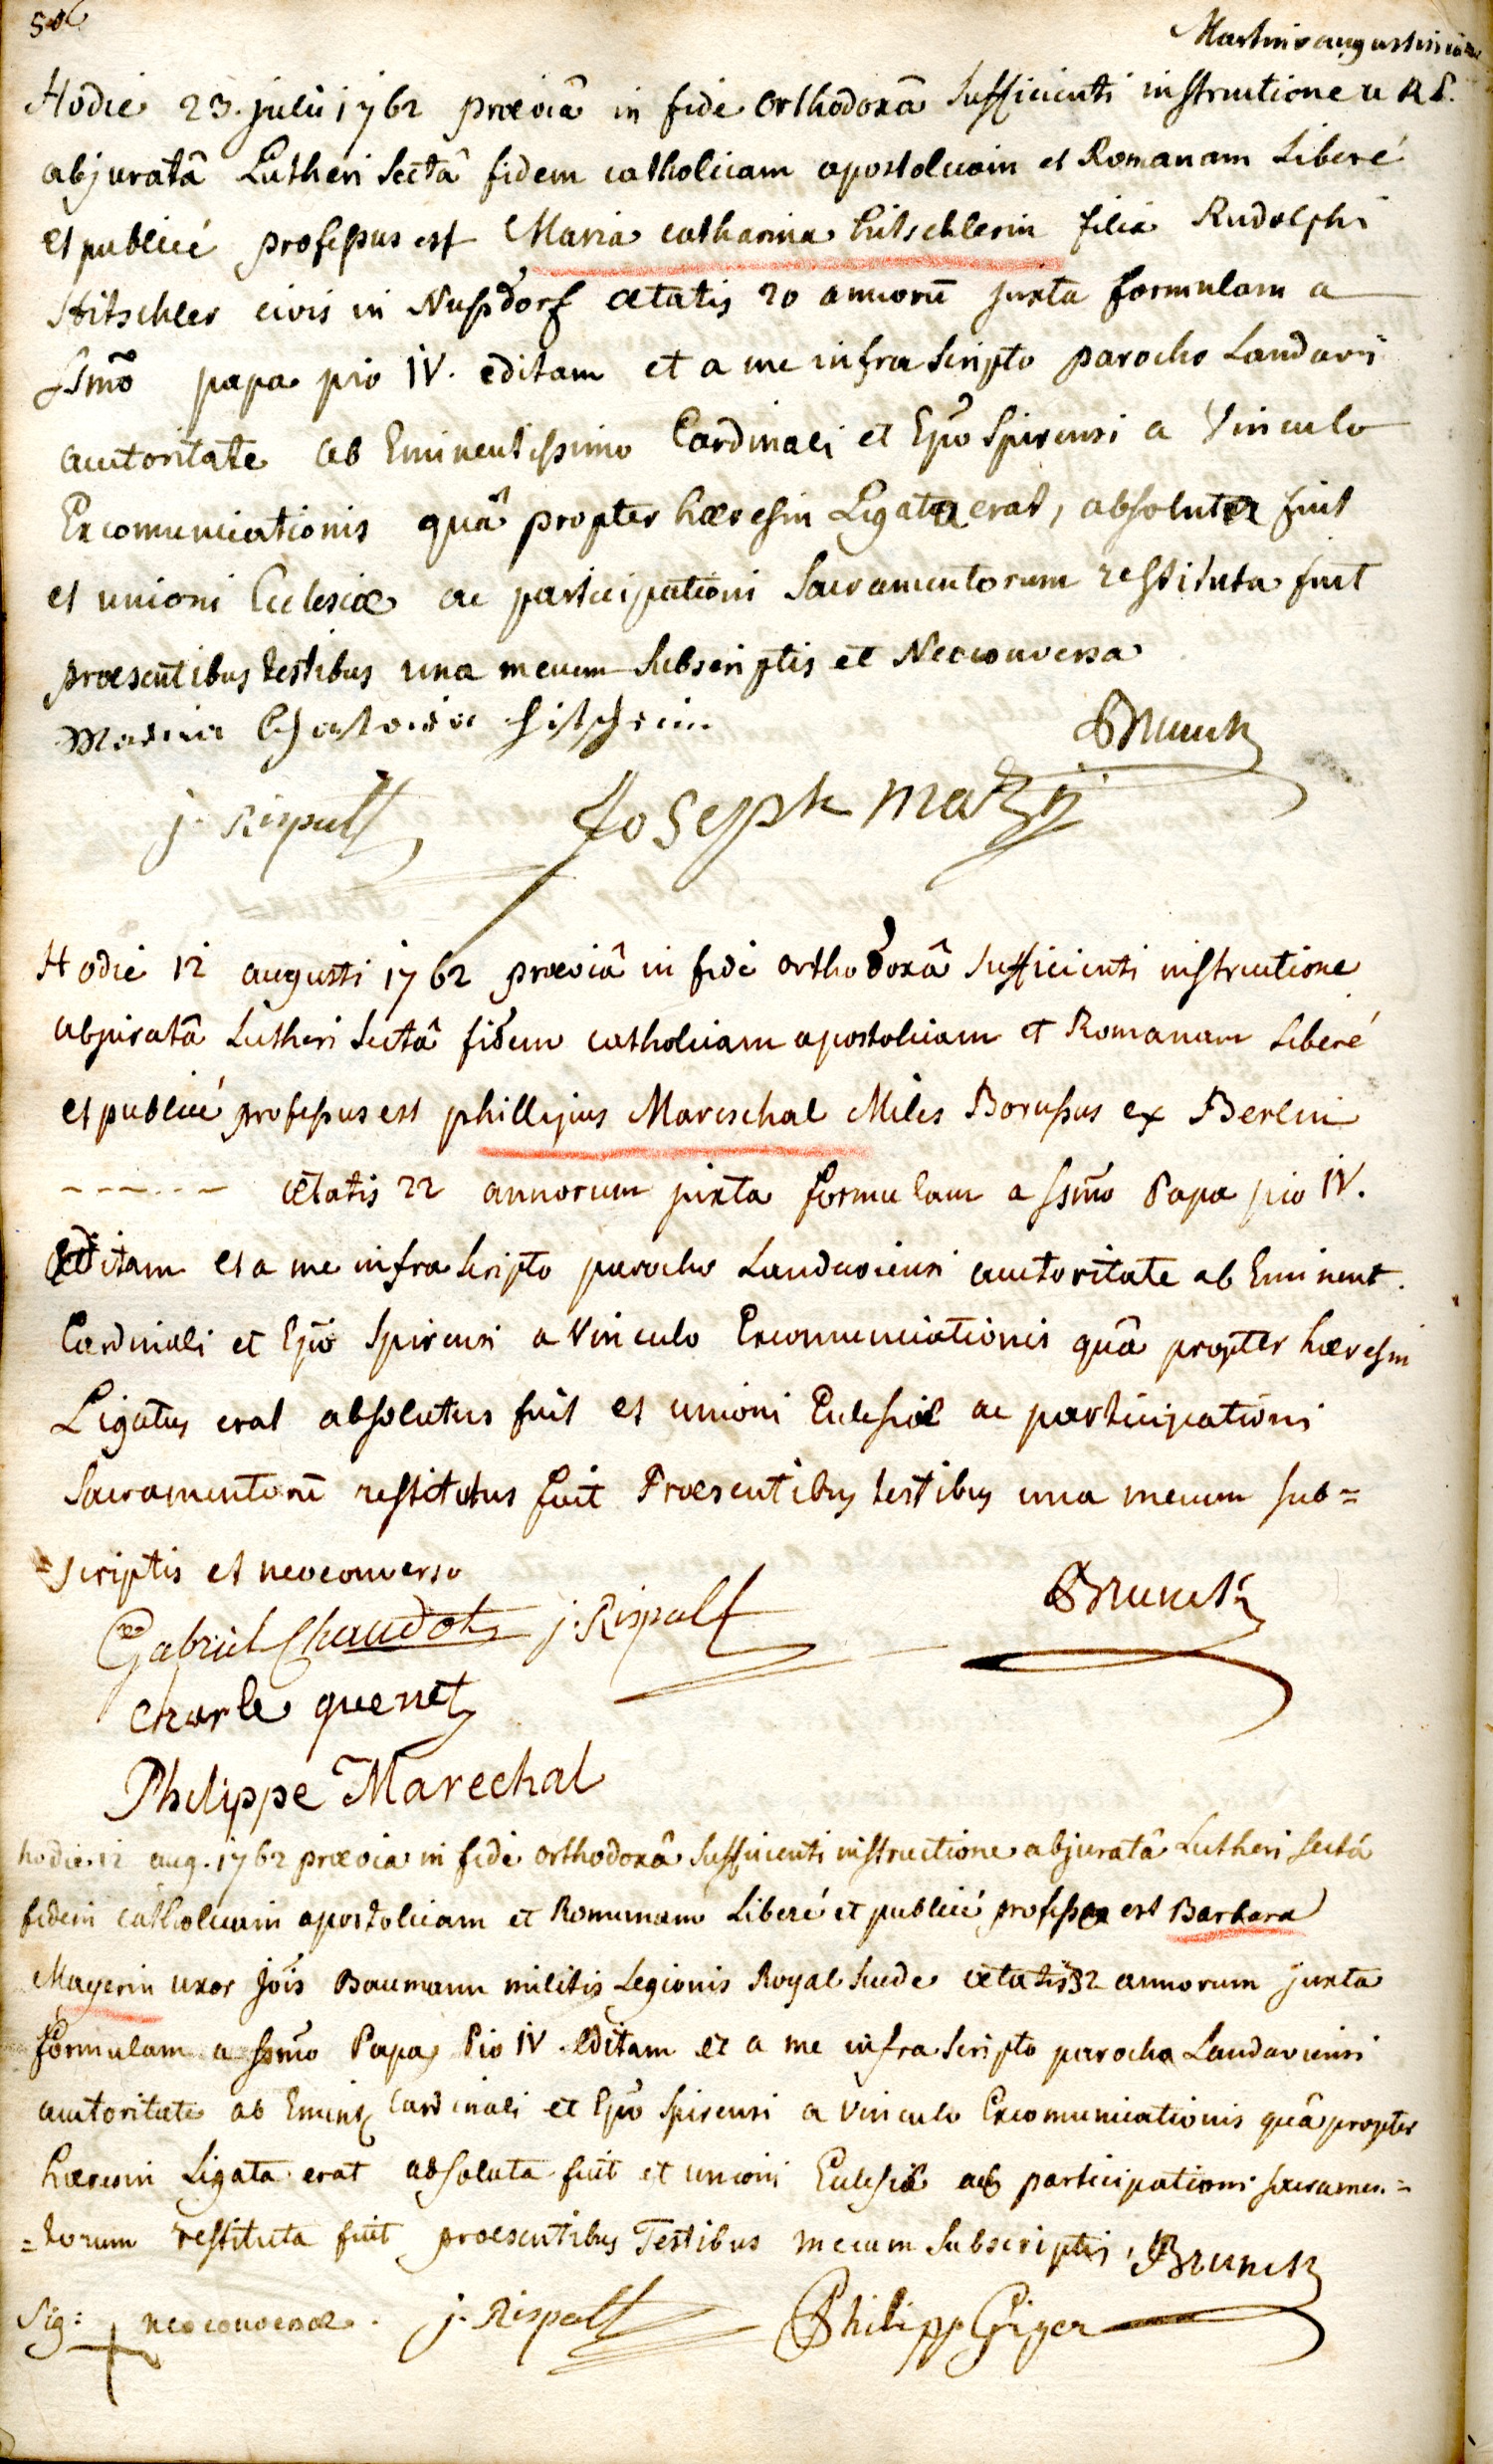 Martino augustiniano
Hodie 23. julii 1762 præviâ in fide orthodoxâ sufficienti instructione a R P.
abjuratâ Lutheri sectâ fidem catholicam apostolicam et Romanam liberé
et publicé professus est Maria catharina hitschlerin filia Rudolphi
Hitschler civis in Nußdorf ætatis 20 annorū juxta formulam a
Ssm̃o papa pio IV. editam et a me infra scripto parocho Landavi
auctoritate ab Eminentissimo Cardinali et Ep̃o Spirensi a Vinculo
Excomunicationis quâ propter hæresin Ligata erat, absoluta fuit
et unioni Eclesiæ ac participationi Sacramentorum restituta fuit
præsentibus testibus una mecum Subscriptis et Neoconversa
Maria
Brunck
j. Rispalt Joseph matzy
Hodie 12 augusti 1762 præviâ in fide orthodoxâ sufficienti instructione
abjuratâ Lutheri sectâ fidem catholicam apostolicam et Romanam liberé
et publicé professus est phillipus Mareschal Miles Borussus ex Berlin
------- ætatis 22 annorum juxta formulam a ssm̃o Papa pio IV.
Editam et a me infra scripto parocho Landaviensi auctoritate ab Eminent.
Cardinali et Ep̃o Spirensi a Vinculo Excomunicationis quâ propter hæresin
Ligatus erat absolutus fuit et unioni Eclesiæ ac participationi
Sacramentorū restitutus fuit Præsentibus testibus una mecum sub=
=scriptis et neoconverso
Gabriel Chaudot j. Rispalt Brunck
charle quenet
Philippe Marechal
hodie 12 aug. 1762 prævia in fide orthodoxâ sufficienti instructione abjuratâ Lutheri sectâ
fidem catholicam apostolicam et Romanam liberé et publicé professa est Barbara
Mayerin uxor jõis Baumann militis Legionis Royal Suede ætatis 32 annorum juxta
formulam a ssm̃o Papa Pio IV. editam et a me infra scripto parocho Landaviensi
auctoritate ab Emin. Cardinali et Ep̃o Spirensi a vinculo Excomunicationis quâ propter
hæresin Ligata erat absoluta fuit et unioni Eclesiæ ac participationi sacramen=
=torum restituta fuit præsentibus Testibus mecum subscriptis, Brunck
Sig: + neoconversæ. j. Rispalt Philipp Giger